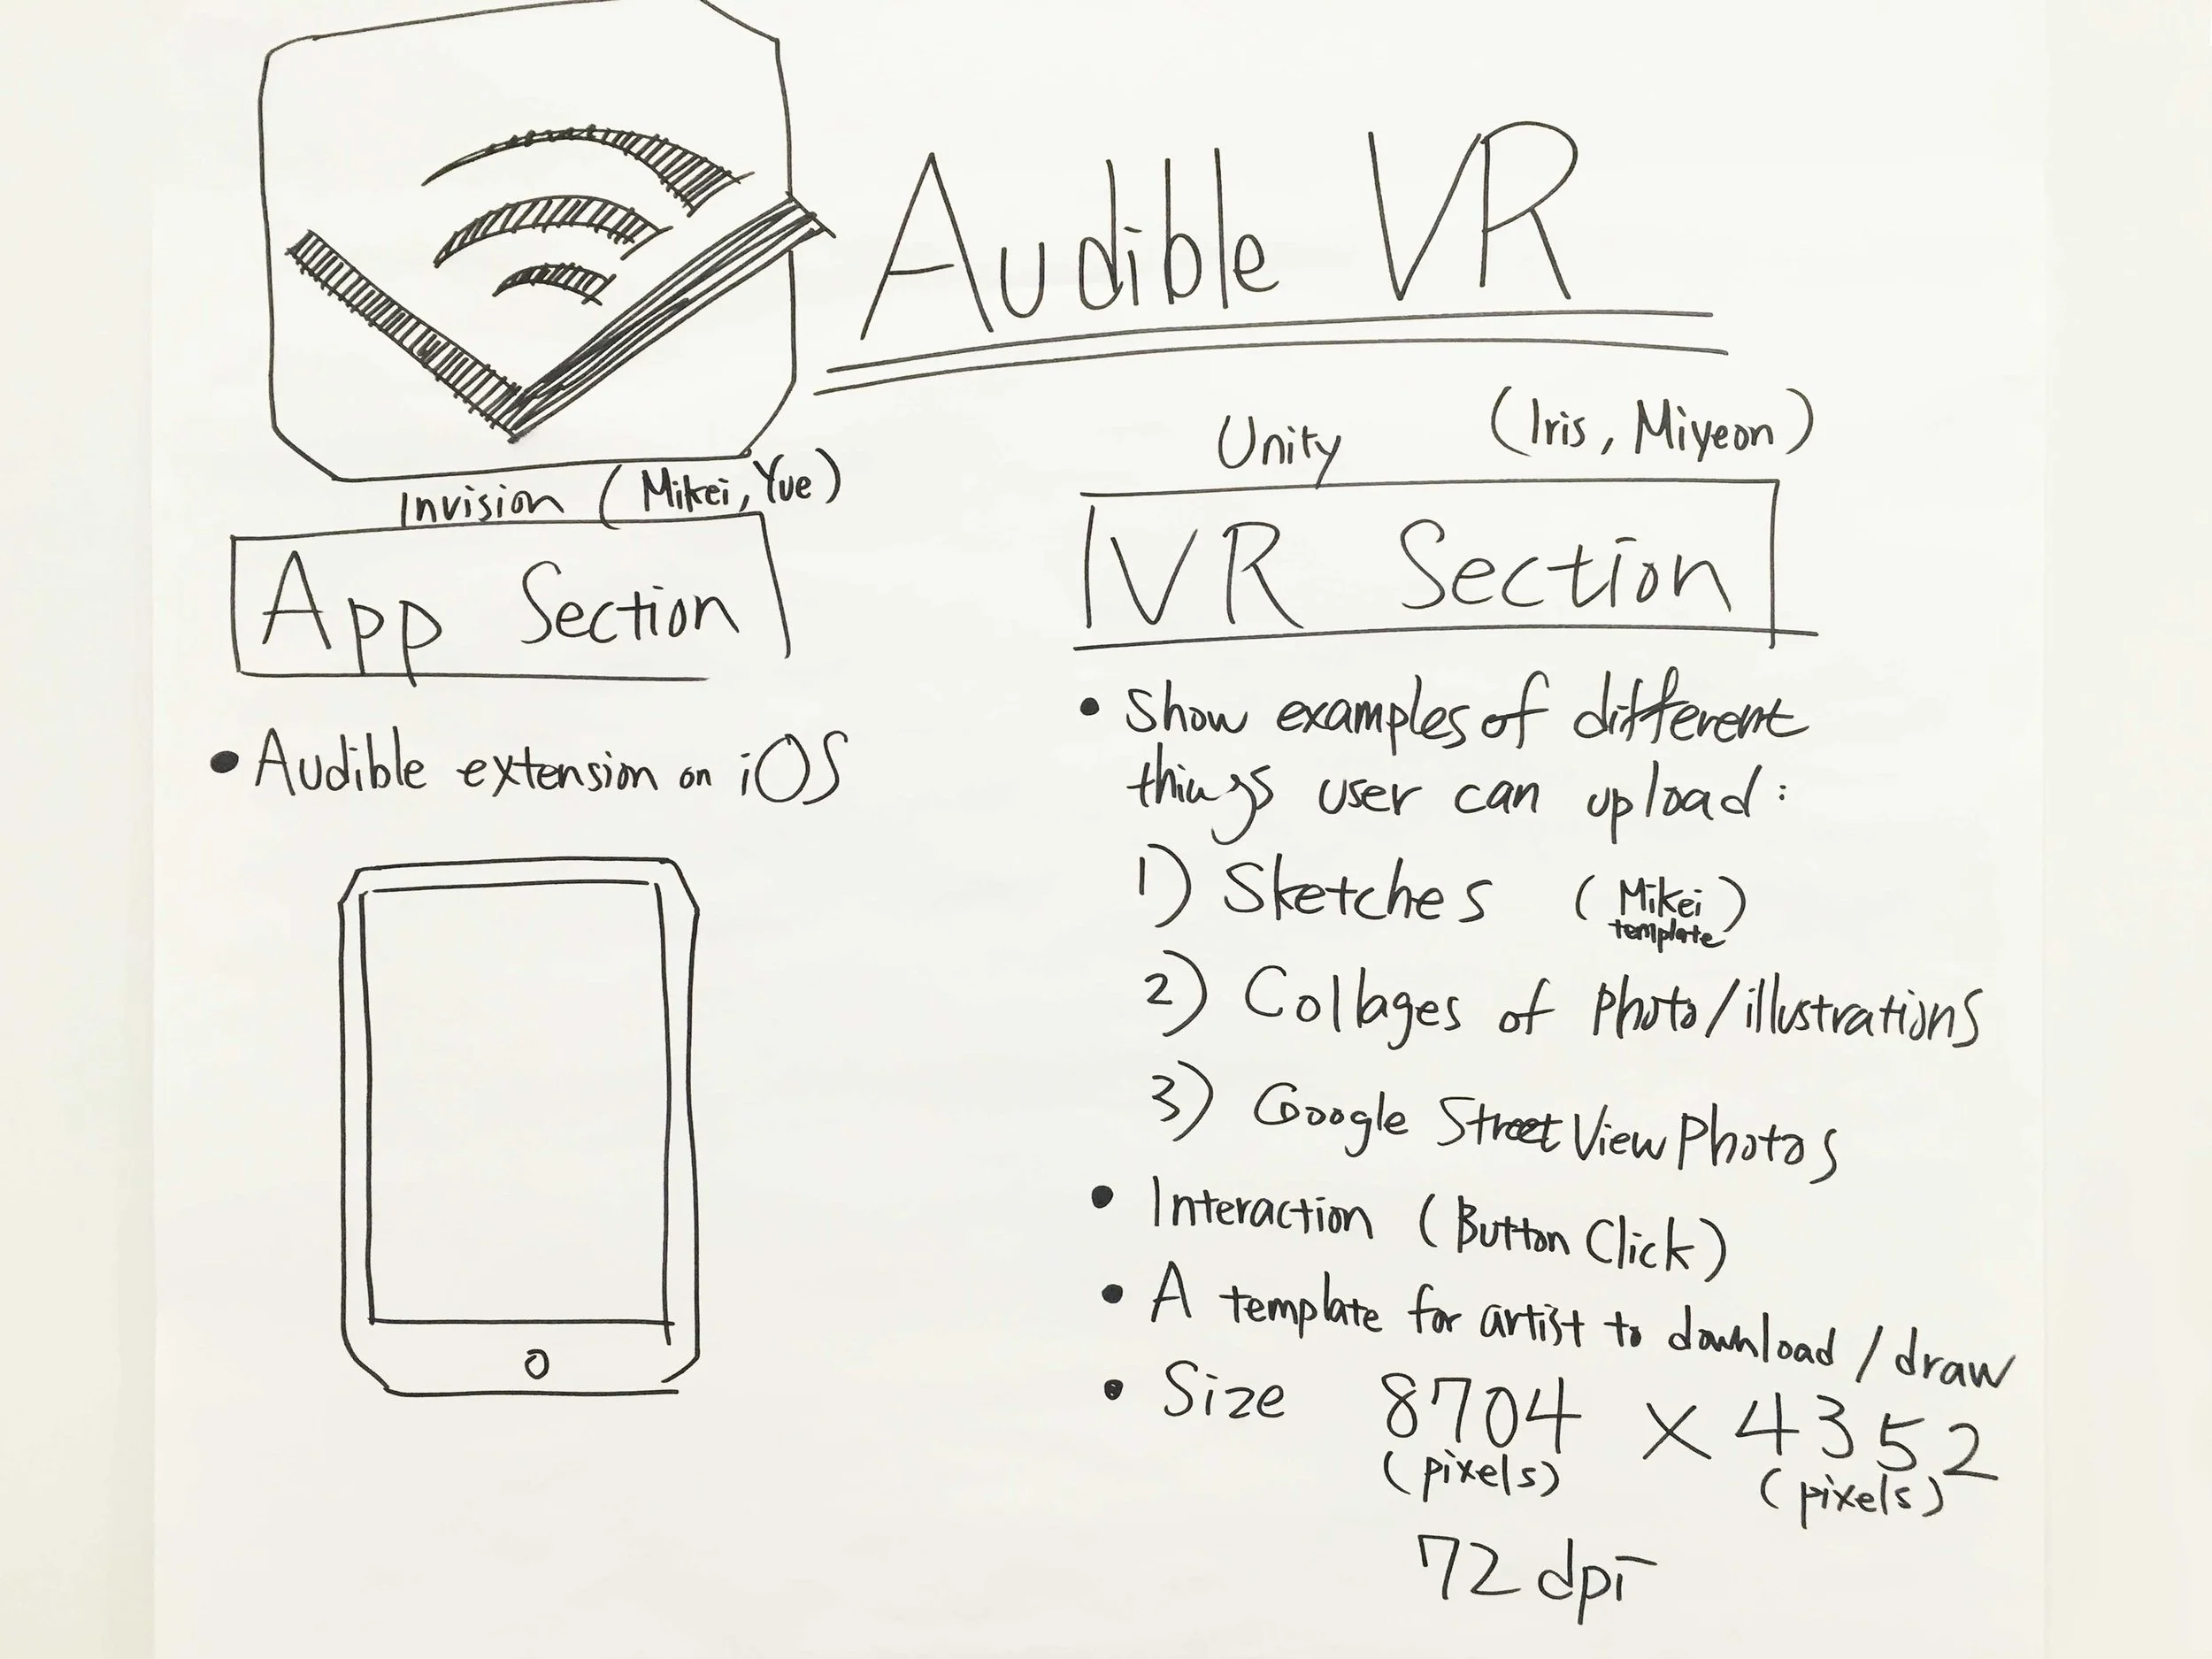 Audible VR
Invision (Mikei, Yue)
App Section
• Audible extension on iOS
Unity (Iris, Miyeon)
VR Section
• Show examples of different
things user can upload:
1) Sketches (Mikei
template)
2) Collages of Photo/illustrations
3) Google Street View Photos
• Interaction (Button Click)
• A template for artist to download / draw
• Size 8704 × 4352
(pixels) (pixels)
72 dpi